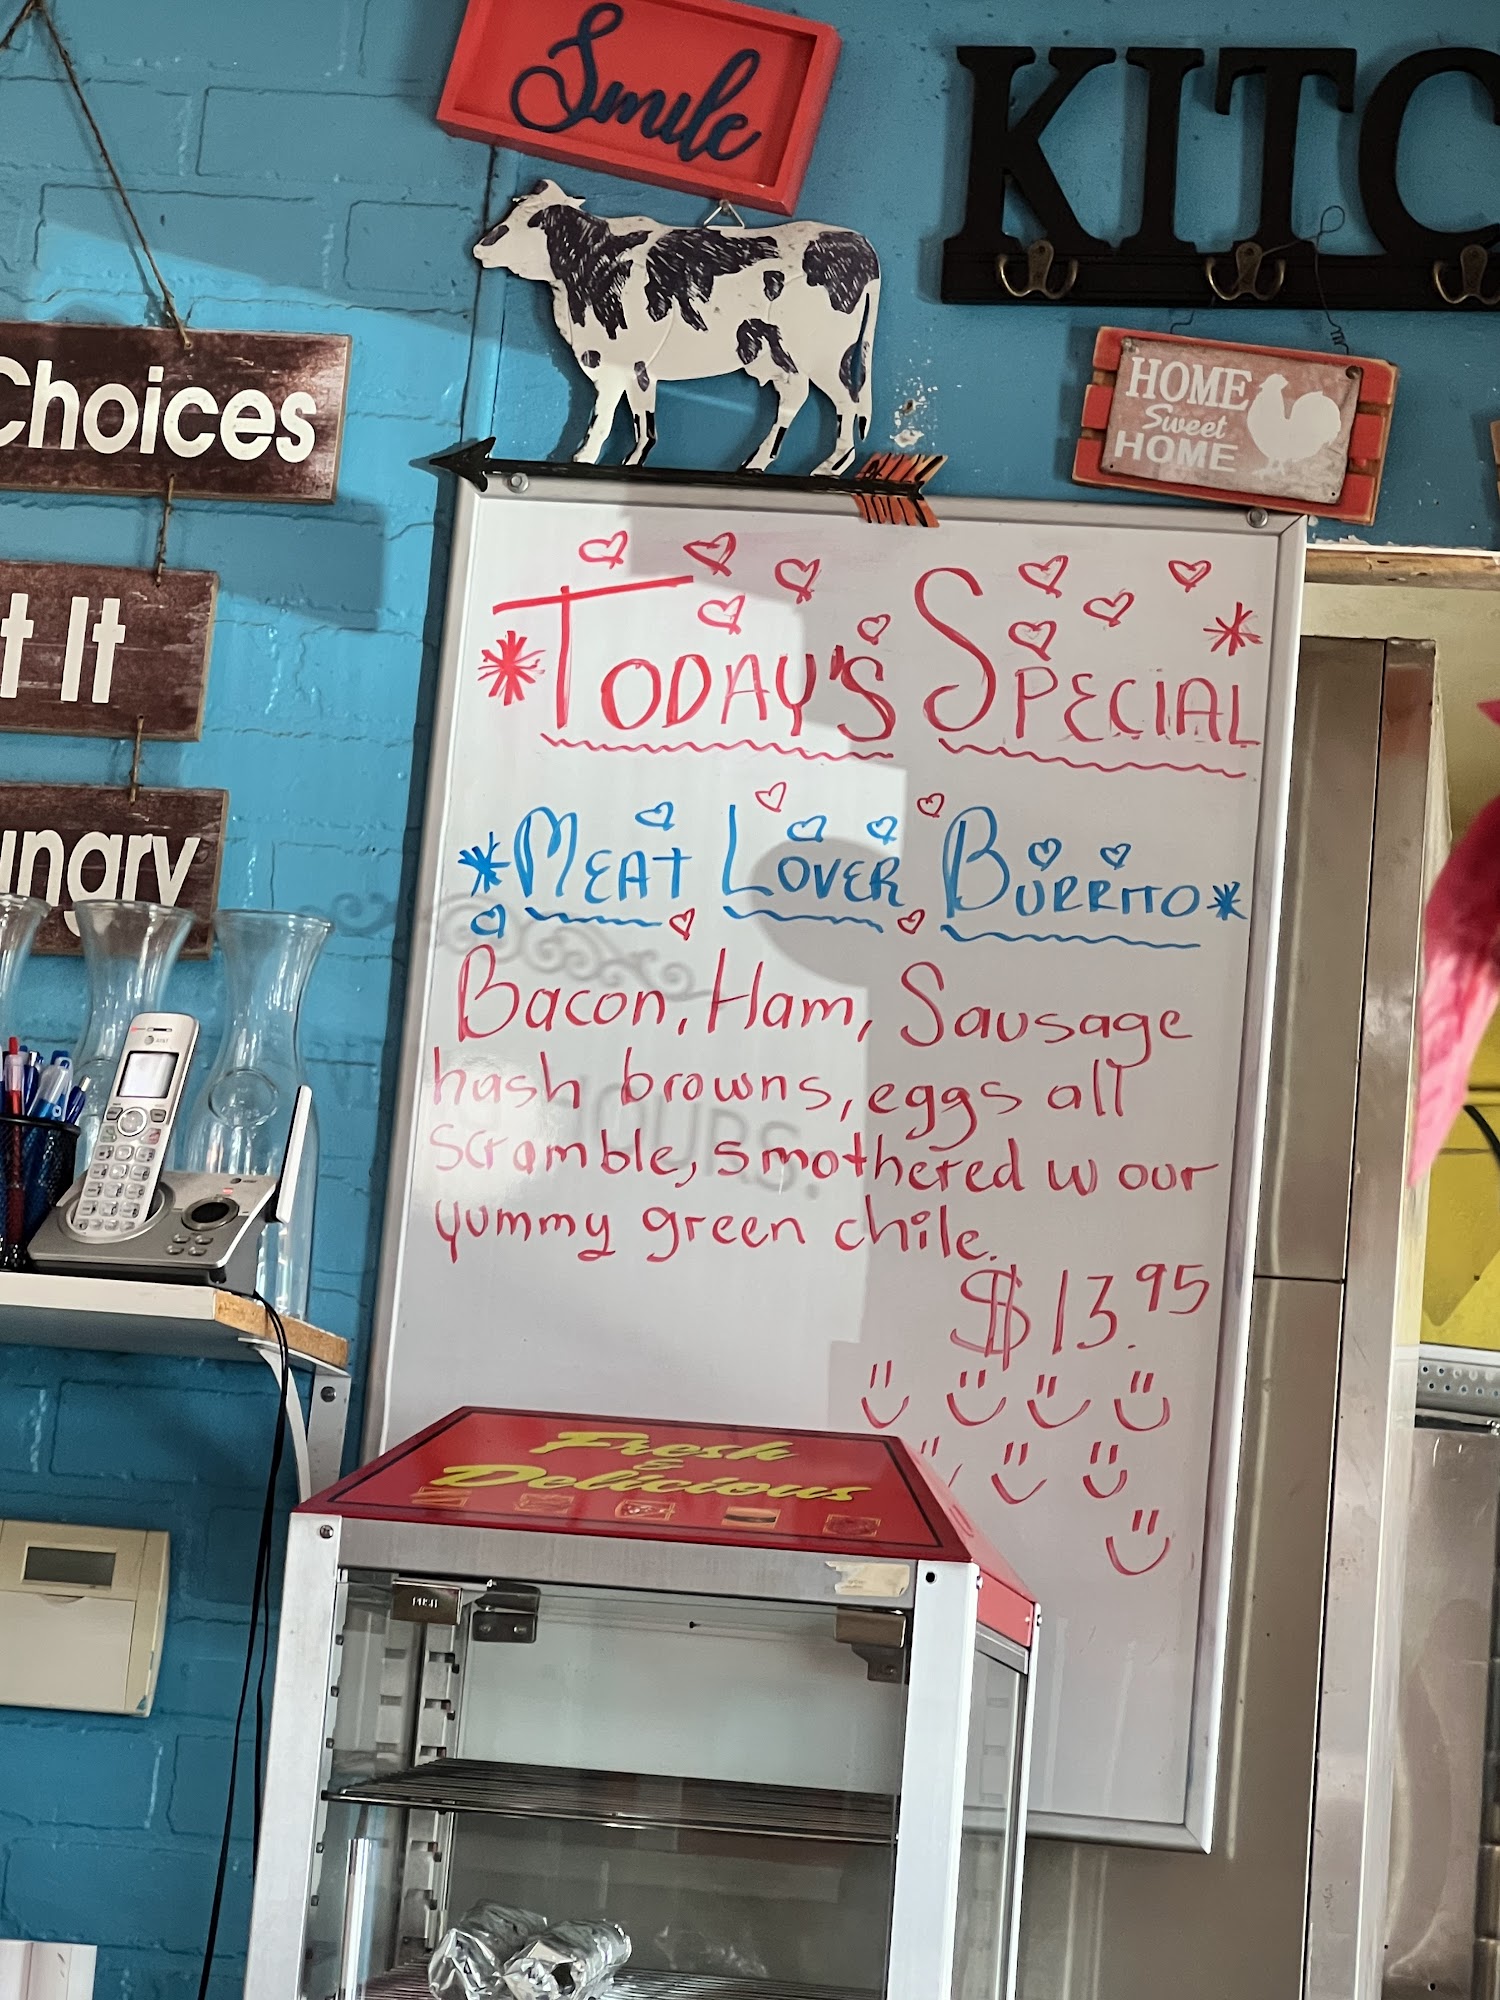 Smile
KITC
Choices
t It
ungry
HOME
Sweet
HOME
*TODAY'S SPECIAL*
*MEAT LOVER BURRITO*
Bacon, Ham, Sausage
hash browns, eggs all
scramble, smothered w our
yummy green chile.
$13.95
HOURS:
AT&T
Fresh
&
Delicious
PUSH